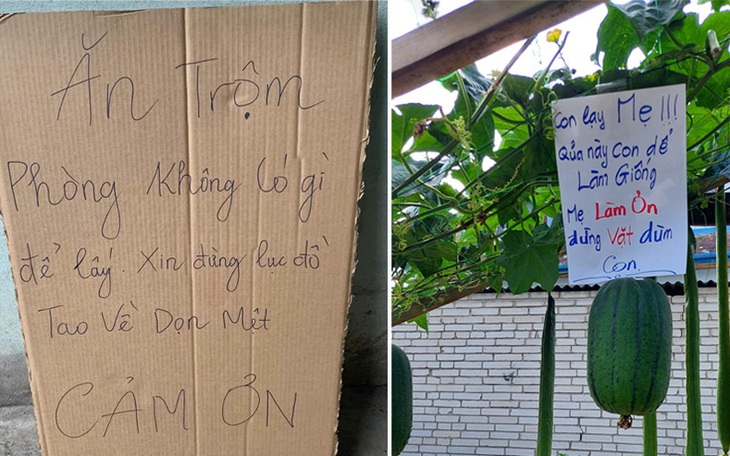 Ăn Trộm
Phòng Không Có gì
để lấy. Xin đừng lục đồ
Tao Về Dọn Mệt
CẢM ƠN
Con lạy Mẹ !!!
Qủa này con để
Làm Giống
Mẹ Làm Ơn
đừng Vặt dùm
Con.